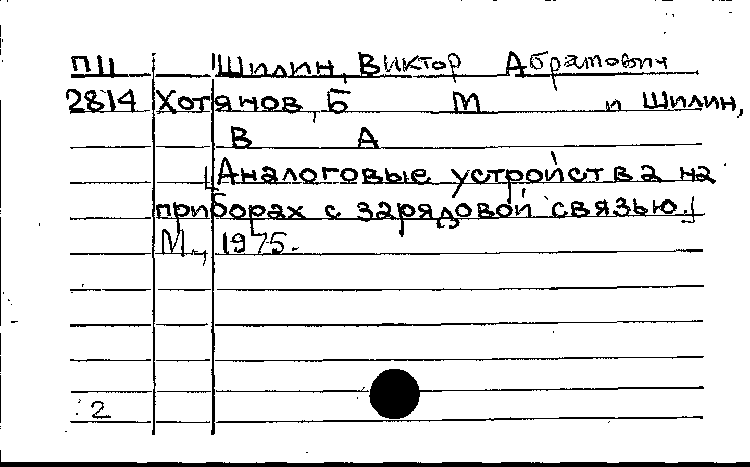 П11 Шилин, Виктор Абрамович
2814 Хотянов, Б М и Шилин,
В А
[Аналоговые устройства на
приборах с зарядовой связью.]
М., 1975.
2